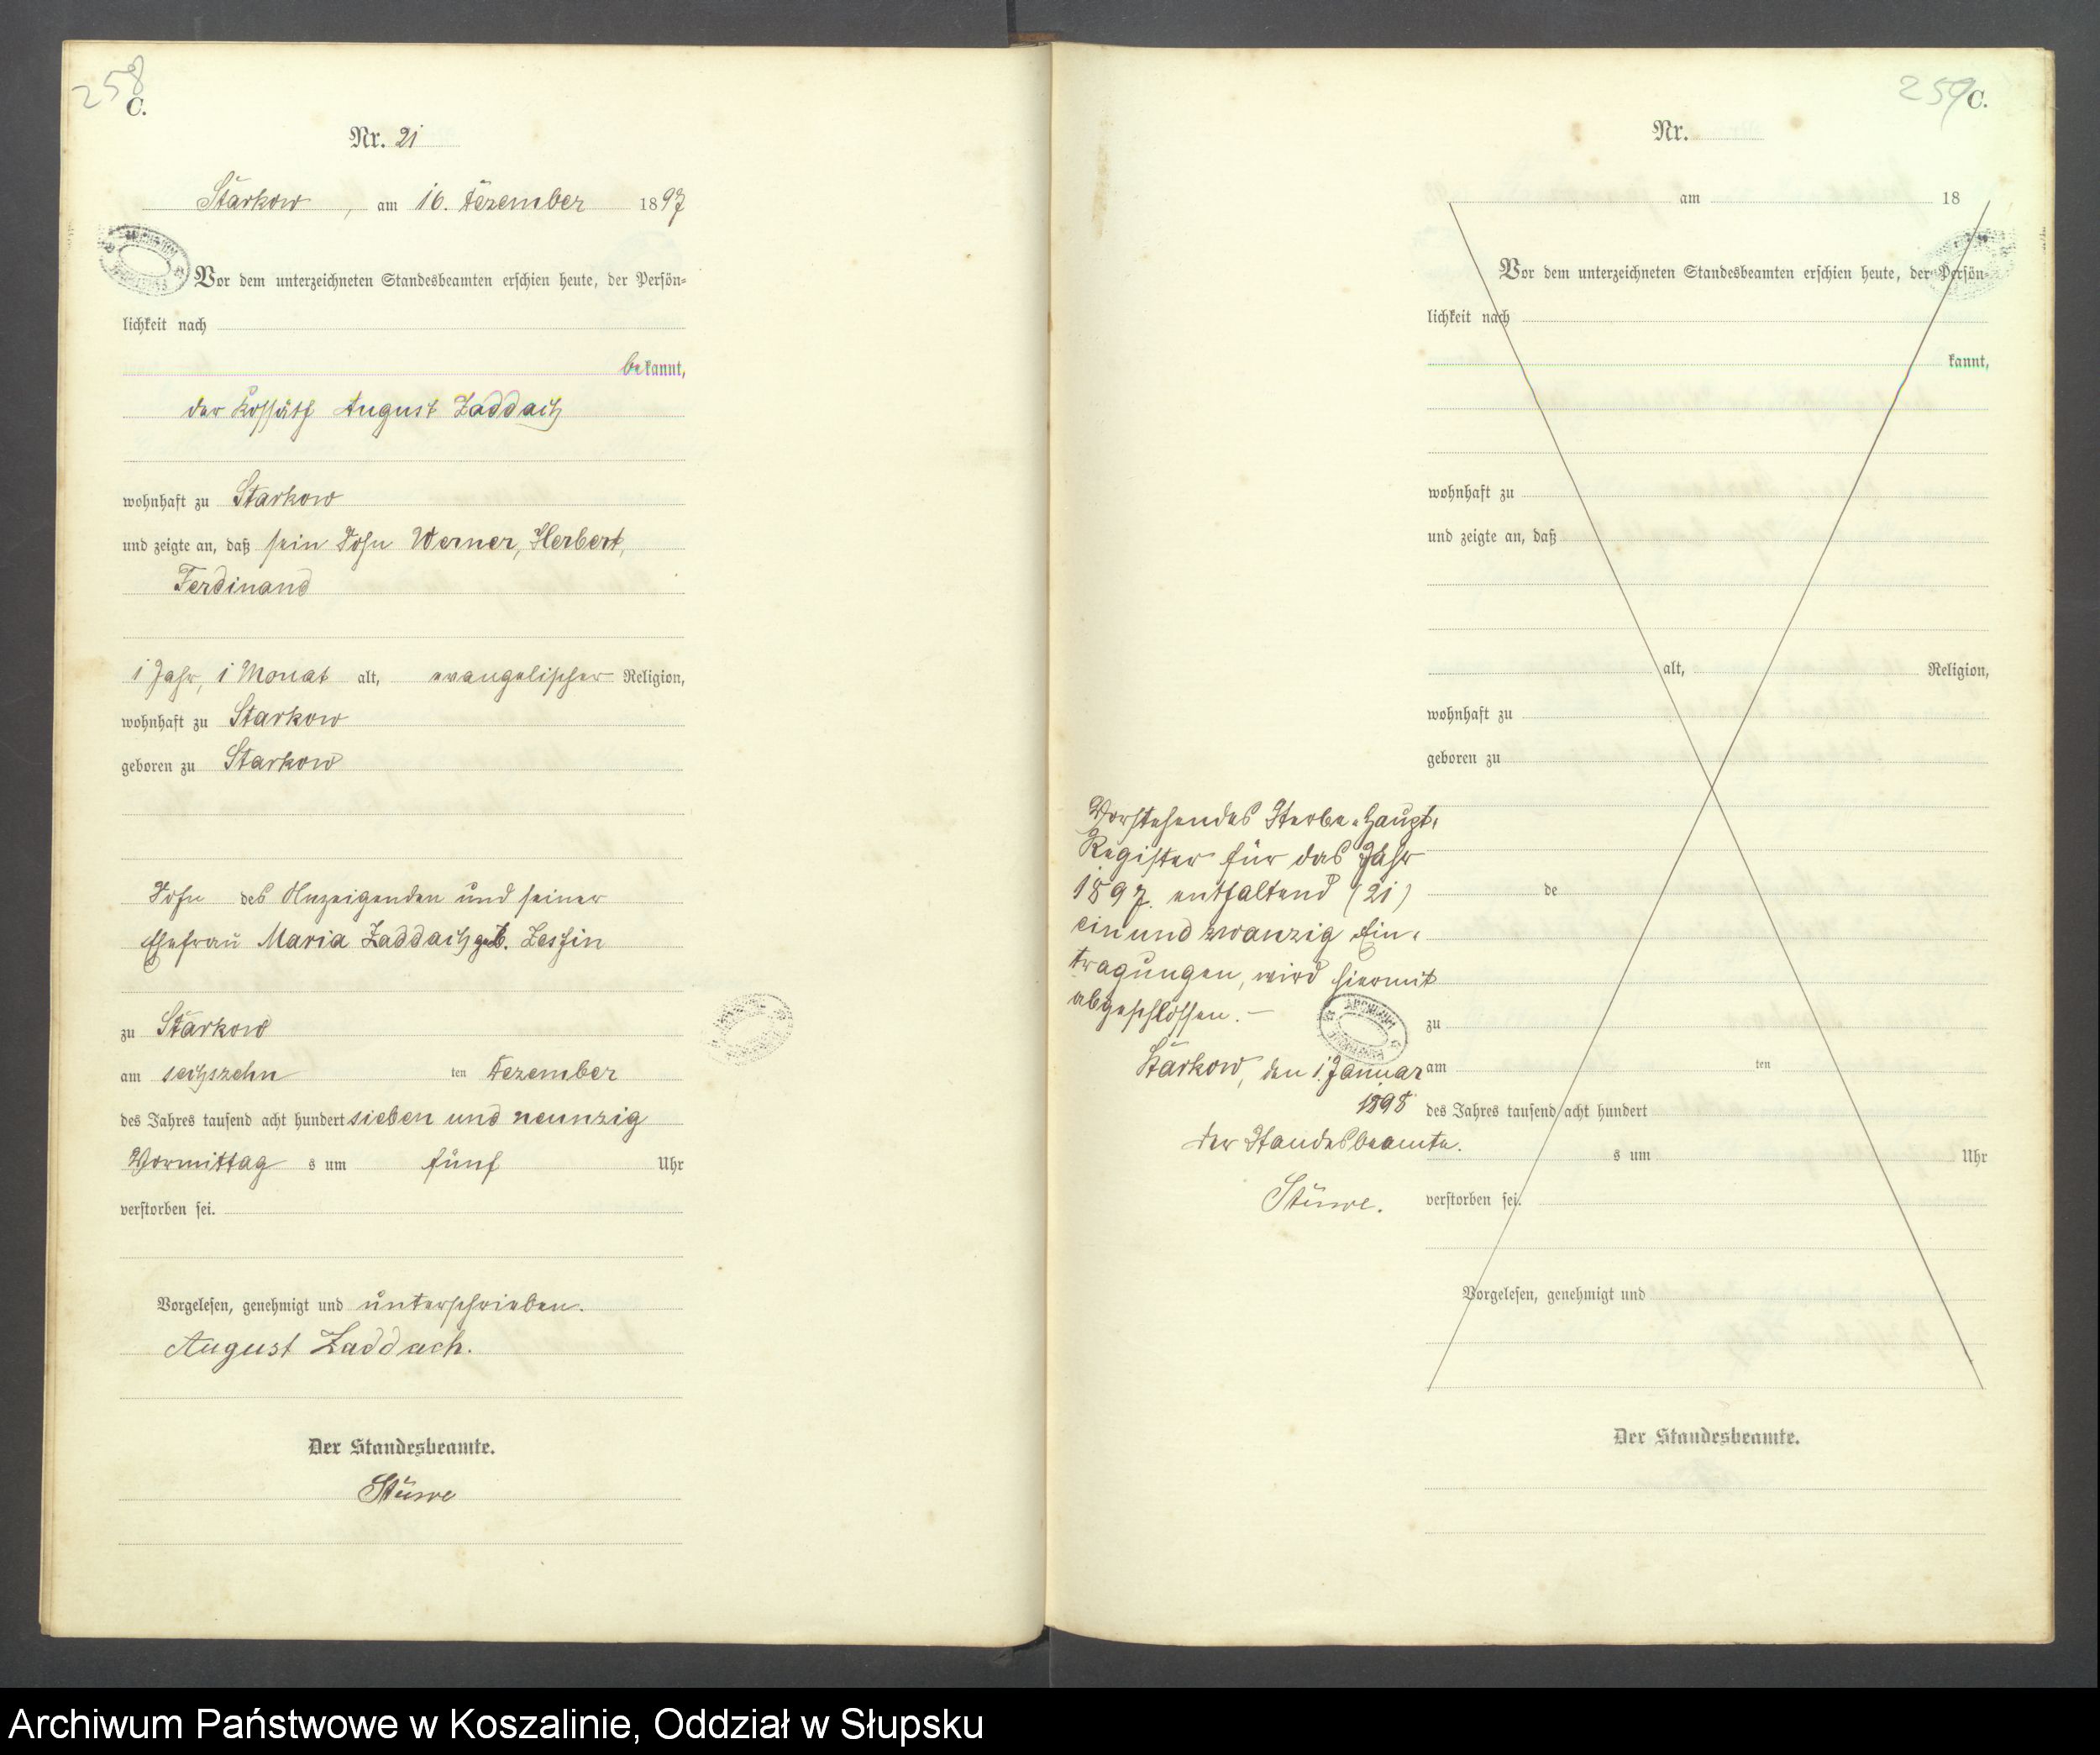 258
C.
Nr. 21
Starkow, am 16. Dezember 1897
Vor dem unterzeichneten Standesbeamten erschien heute, der Persön-
lichkeit nach
bekannt,
der Kossäth August Zaddach
wohnhaft zu Starkow
und zeigte an, daß sein Sohn Werner, Herbert,
Ferdinand
1 Jahr, 1 Monat alt, evangelischer Religion,
wohnhaft zu Starkow
geboren zu Starkow
Sohn des Anzeigenden und seiner
Ehefrau Maria Zaddach geb.
zu Starkow
am sechszehn ten Dezember
des Jahres tausend acht hundert sieben und neunzig
Vormittag s um fünf Uhr
verstorben sei.
Vorgelesen, genehmigt und unterschrieben.
August Zaddach.
Der Standesbeamte.
Stüwe
259
C.
Nr.
am 18
Vor dem unterzeichneten Standesbeamten erschien heute, der Persön-
lichkeit nach
kannt,
wohnhaft zu
und zeigte an, daß
alt, Religion,
wohnhaft zu
geboren zu
de
zu
am ten
des Jahres tausend acht hundert
s um Uhr
verstorben sei.
Vorgelesen, genehmigt und
Der Standesbeamte.
Vorstehendes Sterbe-Haupt-
Register für das Jahr
1897. enthaltend (21)
ein und zwanzig Ein-
tragungen, wird hiermit
abgeschlossen. –
Starkow, den 1. Januar
1898
Der Standesbeamte.
Stüwe.
Archiwum Państwowe w Koszalinie, Oddział w Słupsku